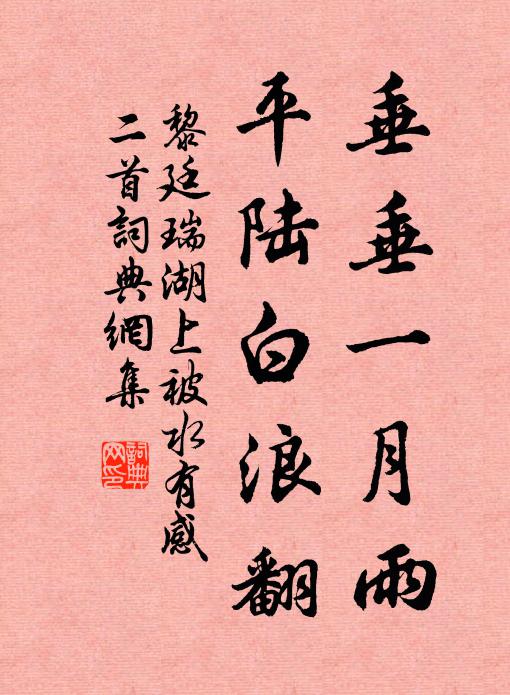 垂垂一月雨
平陆白浪翻
黎廷瑞湖上被水有感
二首詞典網集
詞典
网印